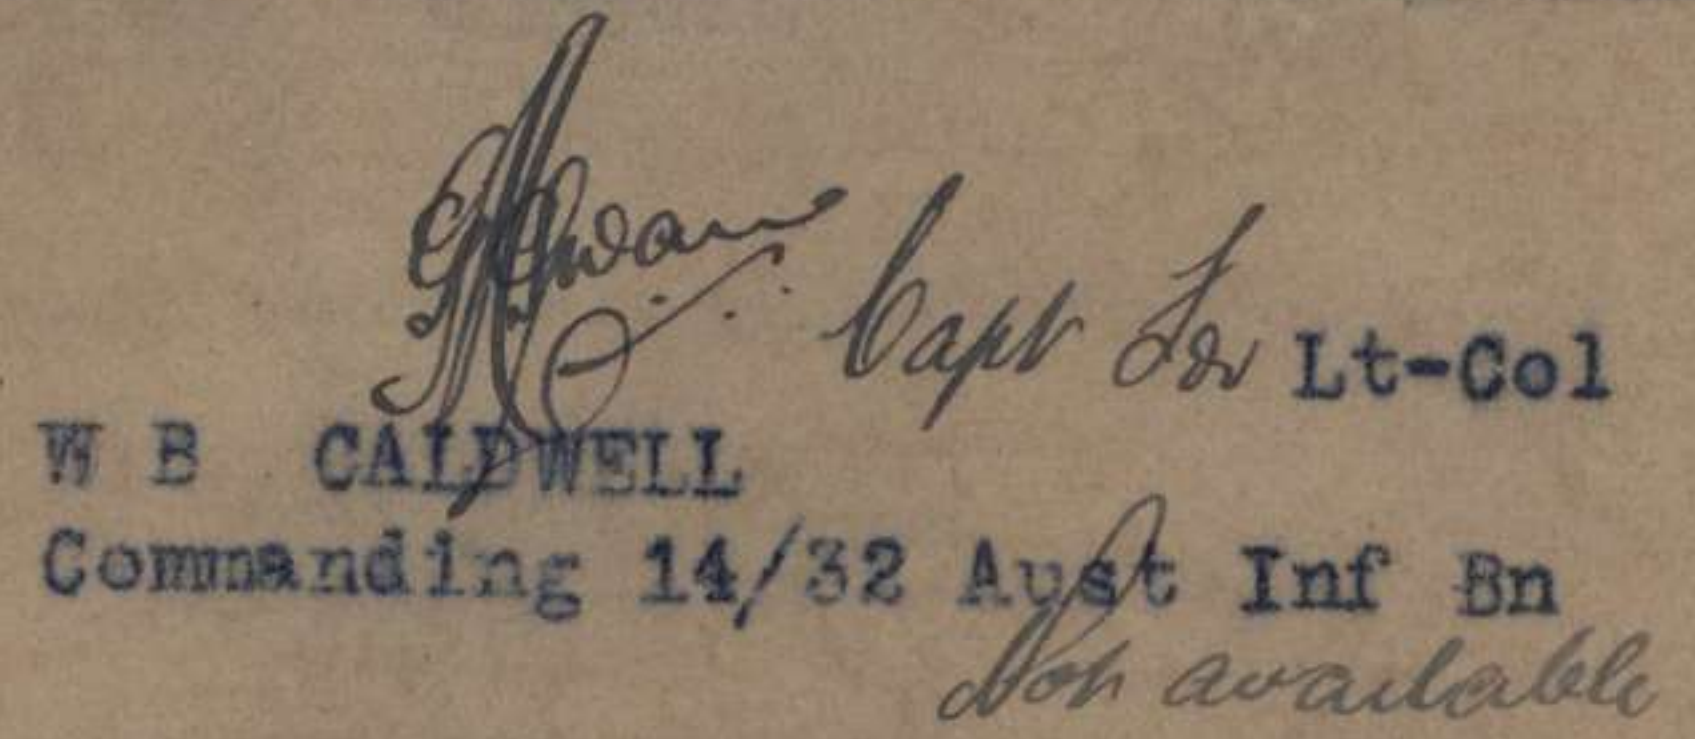 Capt For Lt-Col
W B CALDWELL
Commanding 14/32 Aust Inf Bn
Not available